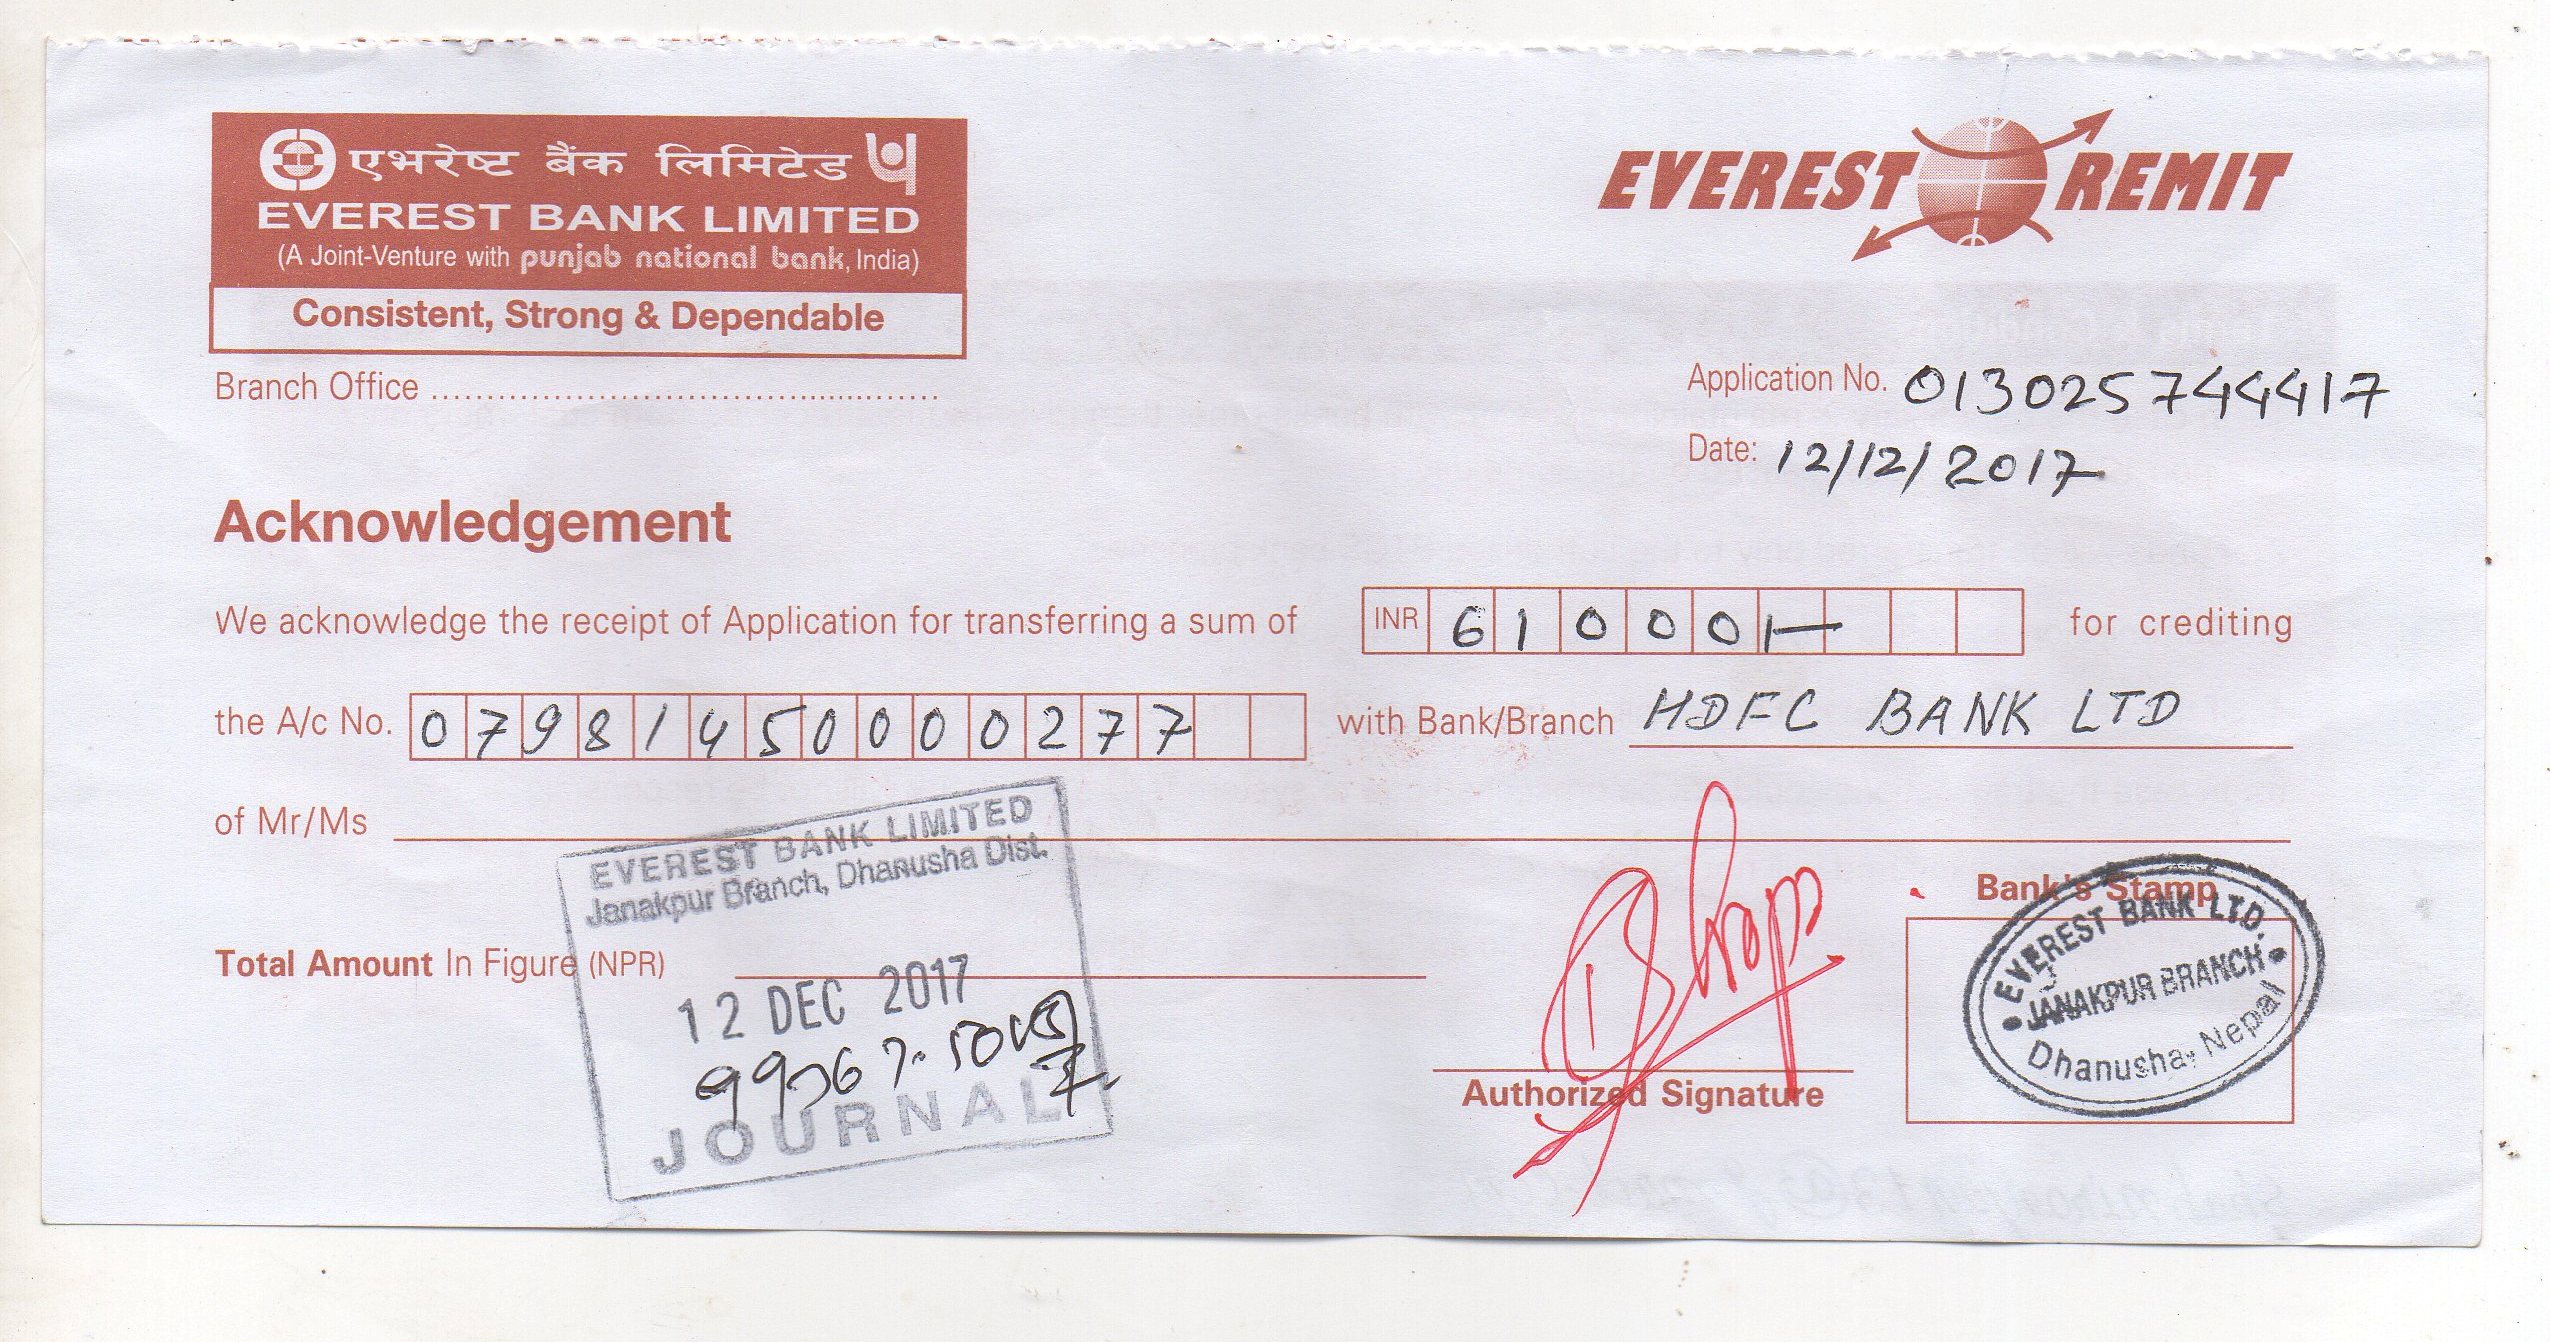 एभरेष्ट बैंक लिमिटेड
EVEREST BANK LIMITED
(A Joint-Venture with punjab national bank, India)
Consistent, Strong & Dependable
EVEREST REMIT
Branch Office ..........................................
Application No. 013025744417
Date: 12/12/2017
Acknowledgement
We acknowledge the receipt of Application for transferring a sum of INR 61000/- for crediting
the A/c No. 07981450000277 with Bank/Branch HDFC BANK LTD
of Mr/Ms
EVEREST BANK LIMITED
Janakpur Branch, Dhanusha Dist.
Total Amount In Figure (NPR)
12 DEC 2017
JOURNAL
Authorized Signature
Bank's Stamp
EVEREST BANK LTD.
JANAKPUR BRANCH
Dhanusha, Nepal